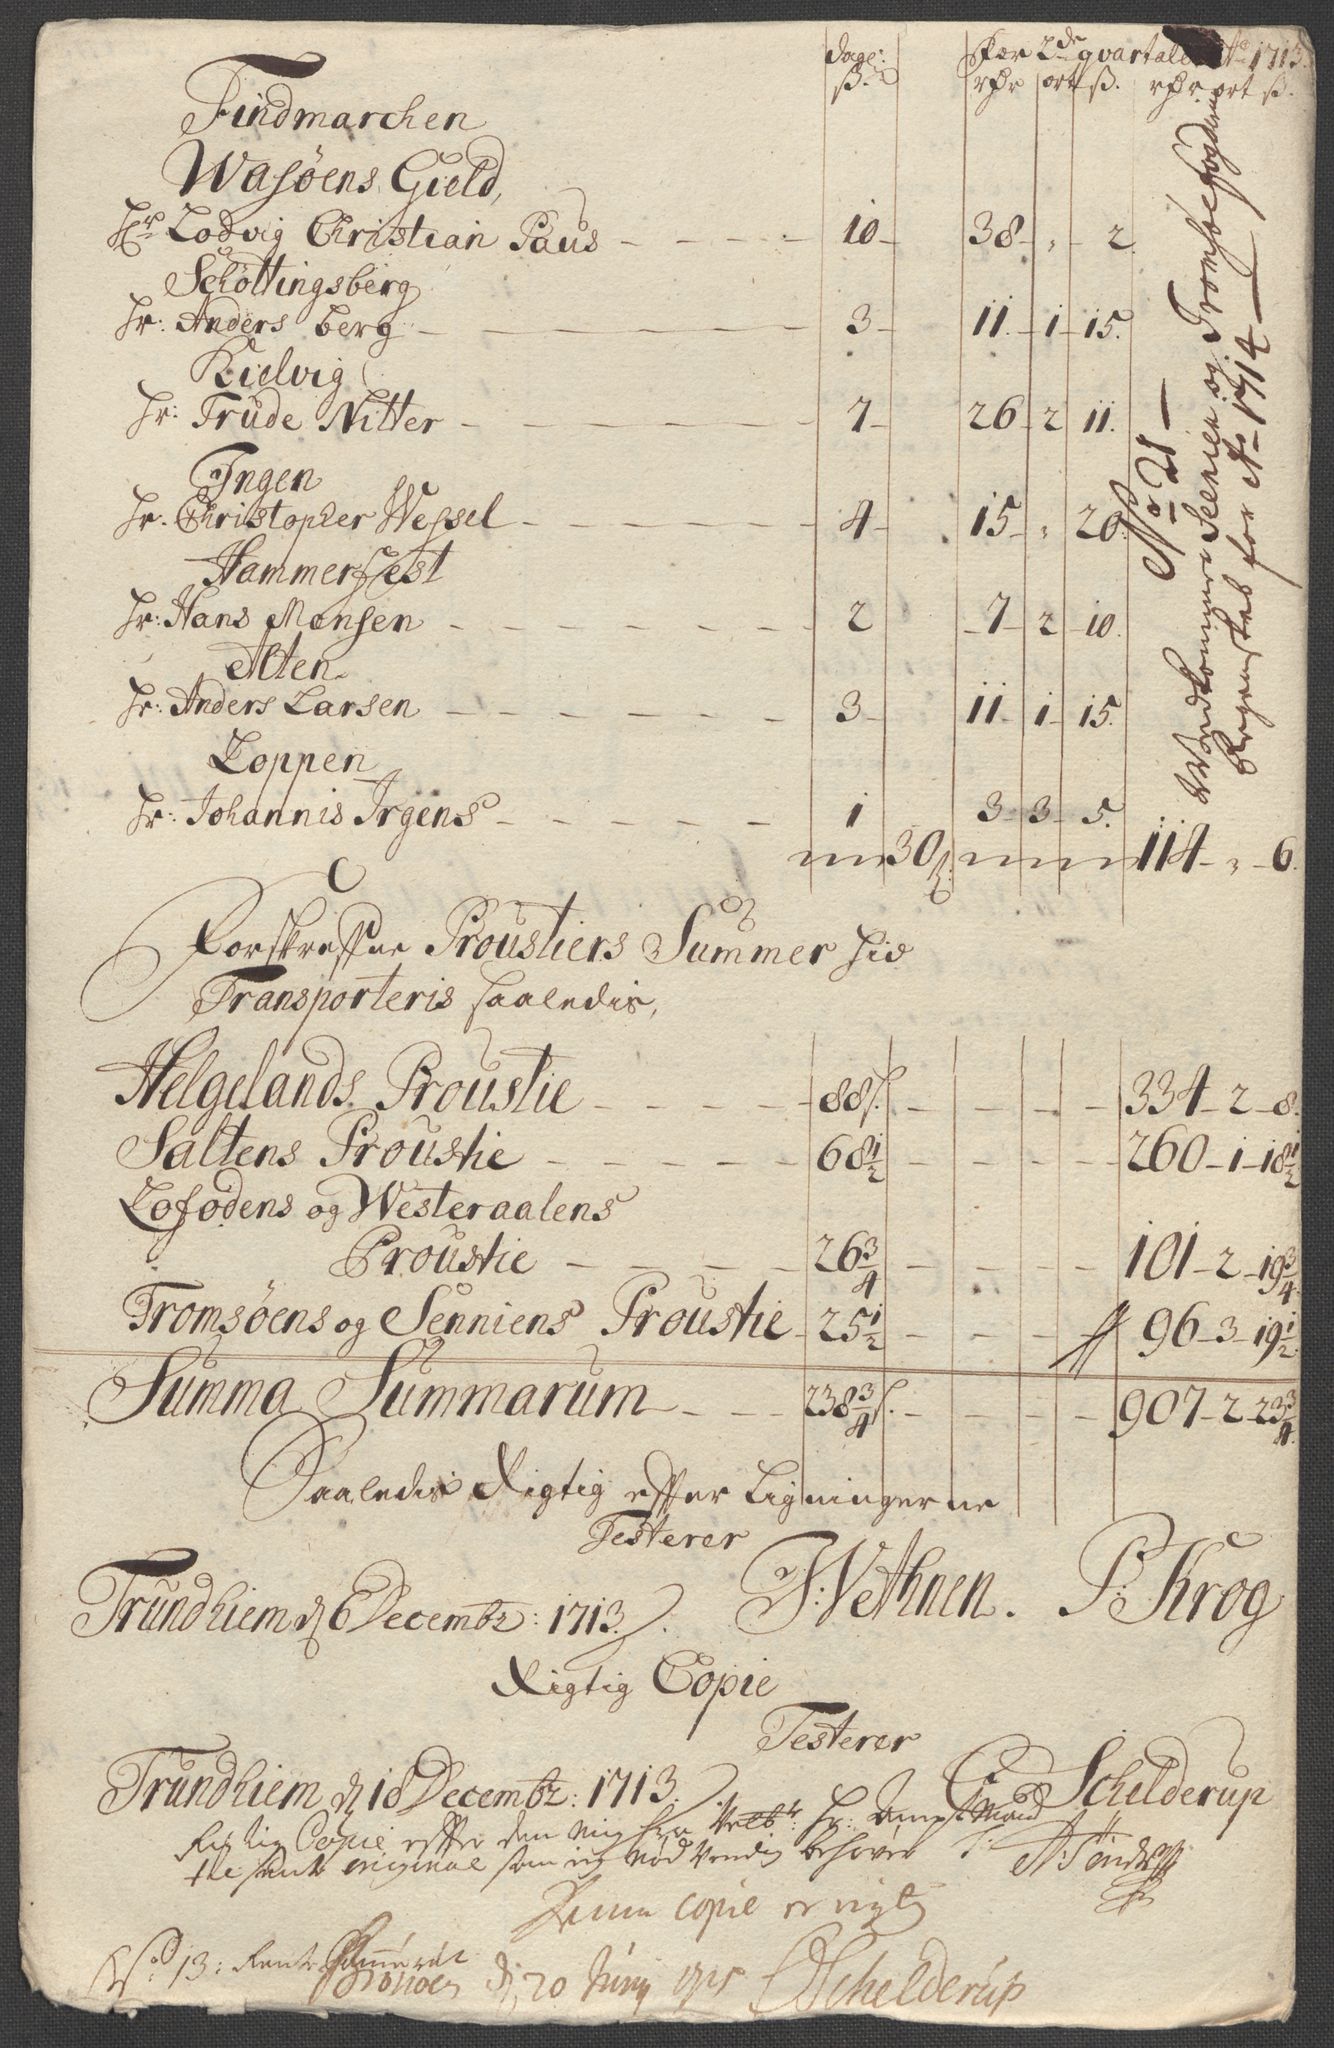 dage: Pær 2de qvartaler Ao 1713.
ß. rdr ort ß. rdr. ort ß.
Findmarchen
Wasøens Gield,
Hr Lodvig Christian Paus 10 38 - " - 2
Schøttingsberg
Hr: Anders berg 3 11 - 1 - 15.
Kielvig
Hr: Trude Nitter 7 26 - 2 11.
Ingen
Hr. Christopher Wessel 4 15 - " 20.
Hammerfest
Hr: Hans Monsen 2 7 - 2 - 10.
Alten
Hr: Anders Larsen 3 11 - 1 - 15.
Loppen
Hr: Johannis Irgens 1 3 - 3 - 5.
30 ß. 114 - " - 6.
No 21
Vedkommer Senniens og Tromsøe fogderies
Regenskab for Ao 1714
Forskrefne Proustiers Summer hid
Transporteris saaledis,
Helgelands Proustie 88 ß. 334 - 2 - 8.
Saltens Proustie 68 1/2 260 - 1 - 18 1/2
Lofodens og Westeraalens
Proustie 26 3/4 101 - 2 - 19 3/4
Tromsøens og Senniens Proustie 25 1/2 96 - 3 - 19 1/2
Summa Summarum 238 3/4 ß. 907 - 2 - 23 3/4
Saaledis Rigtig effter Ligningerne
Testerer
Trundhiem d 6 Decembr: 1713. F: Wethnen. P: Krog
Rigtig Copie
Testerer
Trundhiem d 18 Decembr: 1713. Schelderup
Rigtig Copie effter den mig fra Velbr: Hr: Ampt Mand
original som ieg nødvendig behøver
Denne copie er rigtig
13: Rente Cammeret
d. 20 Juny 1715 Schelderup